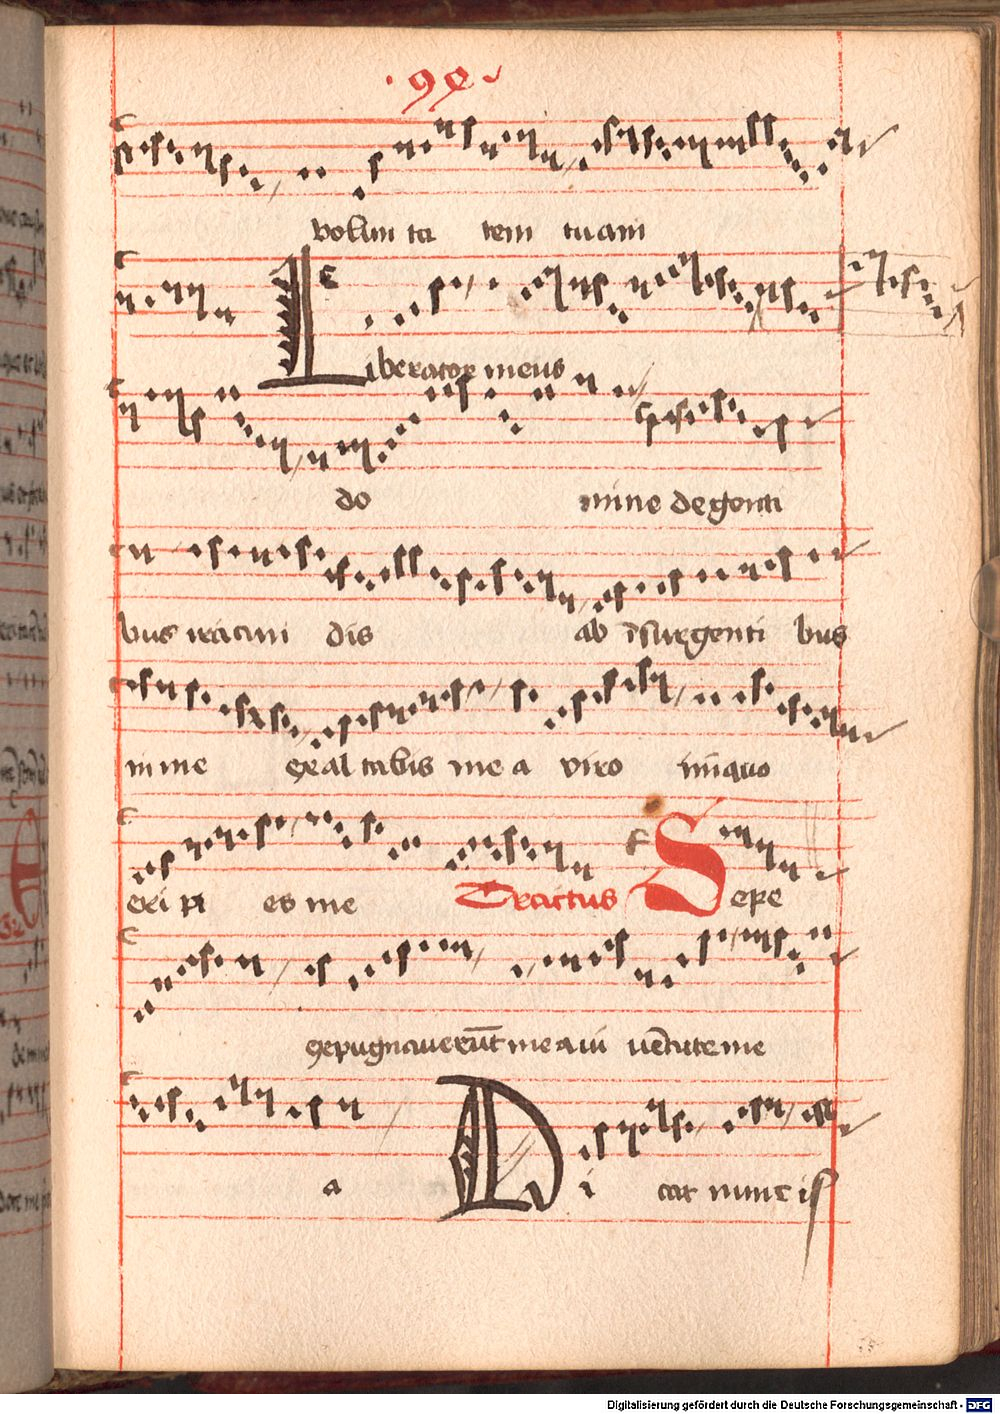 ·99·
volun ta tem tuam
Liberator meus
do mine de genti
bus iracun dis ab īsurgenti bus
in me exal tabis me a viro iniquo
eri pi es me Tractus Sepe
expugnauerūt me a iu uētute me
a Di cat nunc isr
Digitalisierung gefördert durch die Deutsche Forschungsgemeinschaft - DFG